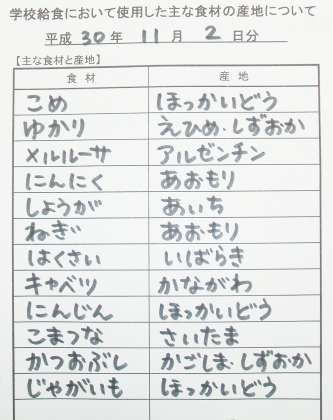 学校給食において使用した主な食材の産地について
平成 30 年 11 月 2 日分
【主な食材と産地】
食材 産地
こめ ほっかいどう
ゆかり えひめ・しずおか
メルルーサ アルゼンチン
にんにく あおもり
しょうが あいち
ねぎ あおもり
はくさい いばらき
キャベツ かながわ
にんじん ほっかいどう
こまつな さいたま
かつおぶし かごしま・しずおか
じゃがいも ほっかいどう